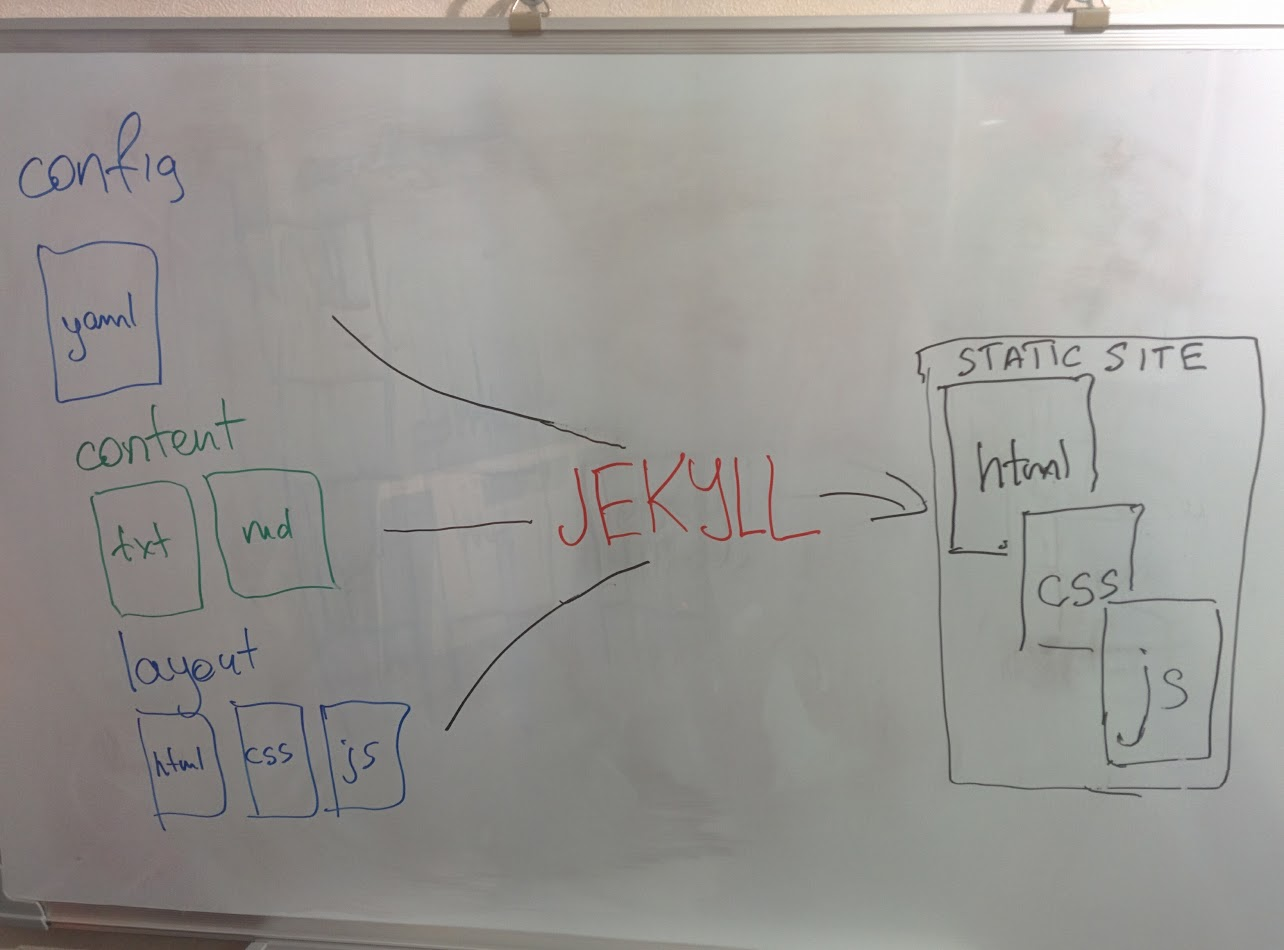 config
yaml
content
txt
md
layout
html
css
js
JEKYLL
STATIC SITE
html
css
js